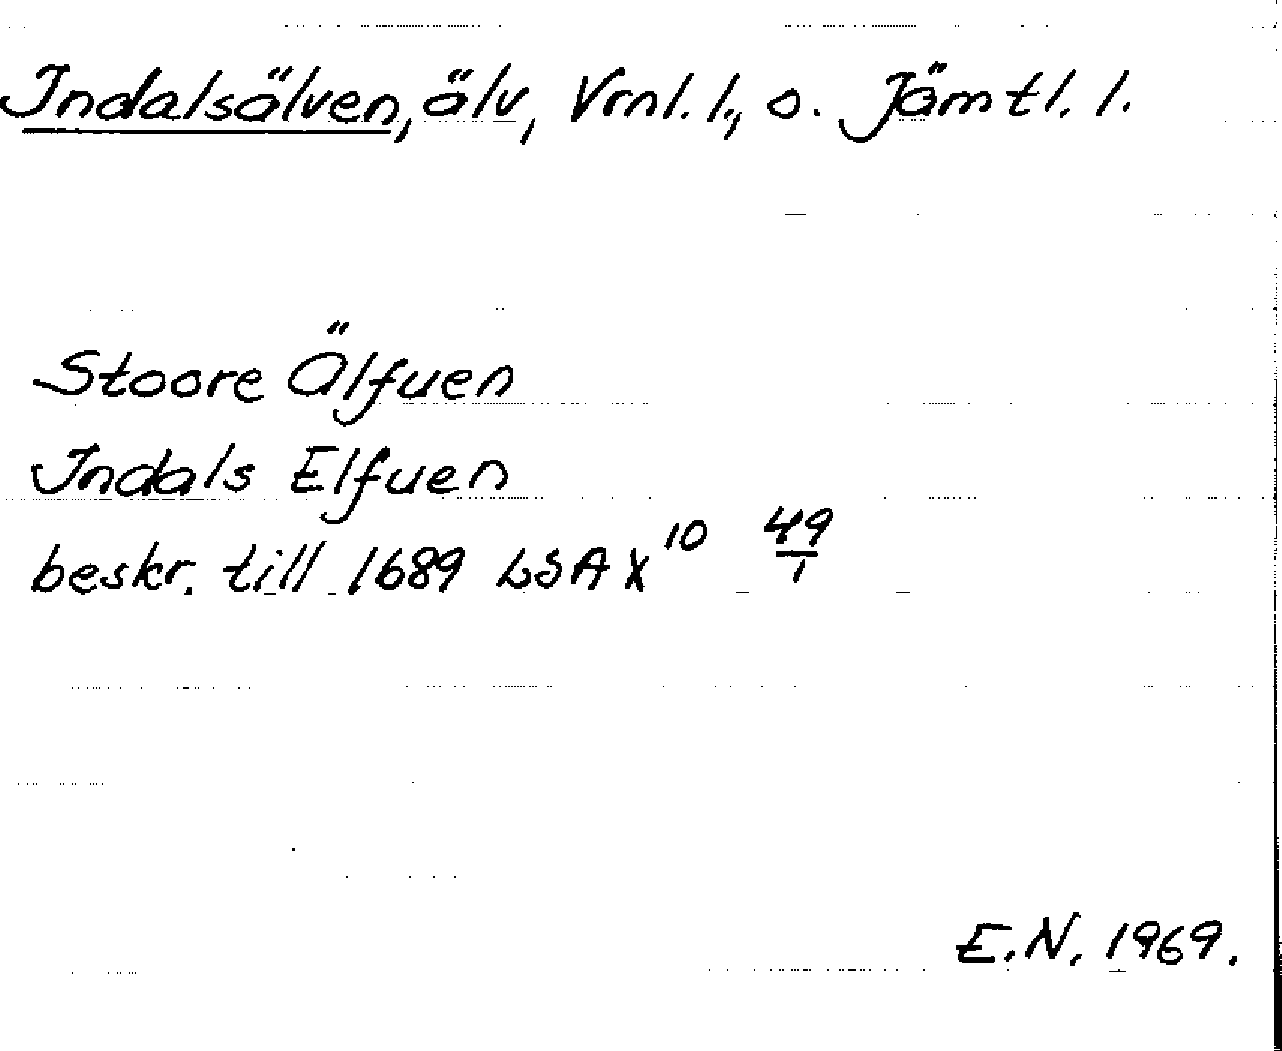 Indalsälven, älv, Vrnl. l., o. Jämtl. l.
Stoore Älfuen
Indals Elfuen
beskr. till 1689 LSA X¹⁰ 49/1
E.N. 1969.